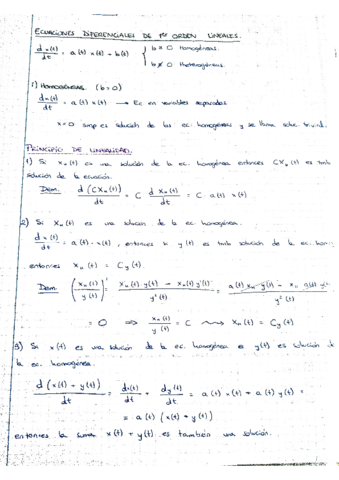 ECUACIONES DIFERENCIALES DE 1er ORDEN LINEALES.
d x(t)/dt = a(t) x(t) + b(t) { b = 0 Homogéneas.
b ≠ 0 Heterogéneas.
1) HOMOGÉNEAS (b=0)
d x(t)/dt = a(t) x(t) → Ec en variables separadas
x=0 simp es solución de las ec. homogéneas y se llama soluc. trivial.
PRINCIPIO DE LINEALIDAD.
1) Si Xn(t) es una solución de la ec. homogénea entonces CXn(t) es tmb
solución de la ecuación.
Dem. d(CXn(t))/dt = C d Xn(t)/dt = C · a(t) x(t)
2) Si Xn(t) es una solución de la ec homogénea.
d x(t)/dt = a(t) · x(t), entonces si y(t) es tmb solución de la ec. hom
entonces Xn(t) = Cy(t)
Dem. (Xn(t)/y(t))' = Xn'(t) · y(t) - Xn(t) y'(t) / y²(t) = a(t) Xn y(t) - Xn a(t) / y²(t)
= 0 ⇒ Xn(t)/y(t) = C ⇝ Xn(t) = Cy(t)
3) Si x(t) es una solución de la ec. homogénea e y(t) es solución
la ec. homogénea.
d(x(t) + y(t))/dt = dx(t)/dt + dy(t)/dt = a(t) x(t) + a(t) y(t) =
= a(t) (x(t) + y(t))
entonces la suma x(t) + y(t) es también una solución.